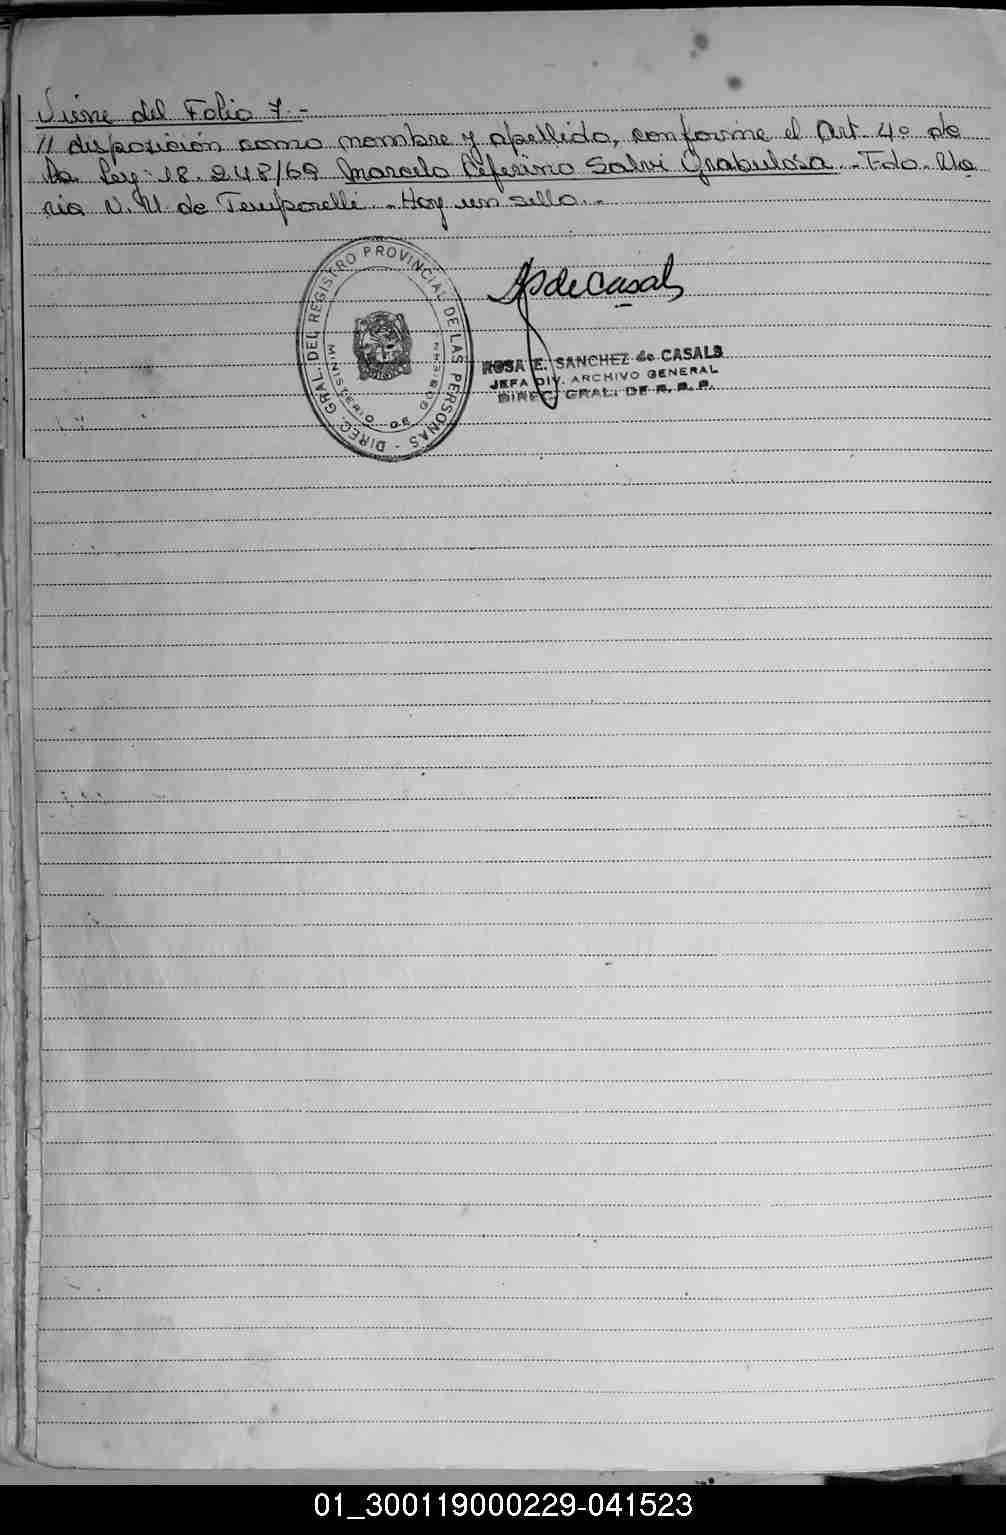 Viene del Folio 7.-
// disposición como nombre y apellido, conforme el Art. 4º de
la Ley: 18.248/69 Marcelo Ceferino Salvi Grabulosa.- Fdo. Ma
ria N. M. de Temporelli.- Hay un sello.-
DIREC. GRAL. DEL REGISTRO PROVINCIAL DE LAS PERSONAS -
MINISTERIO DE GOBIERNO
deCasals
ROSA E. SANCHEZ de CASALS
JEFA DIV. ARCHIVO GENERAL
DIREC. GRAL. DE R. P. P.
01_300119000229-041523